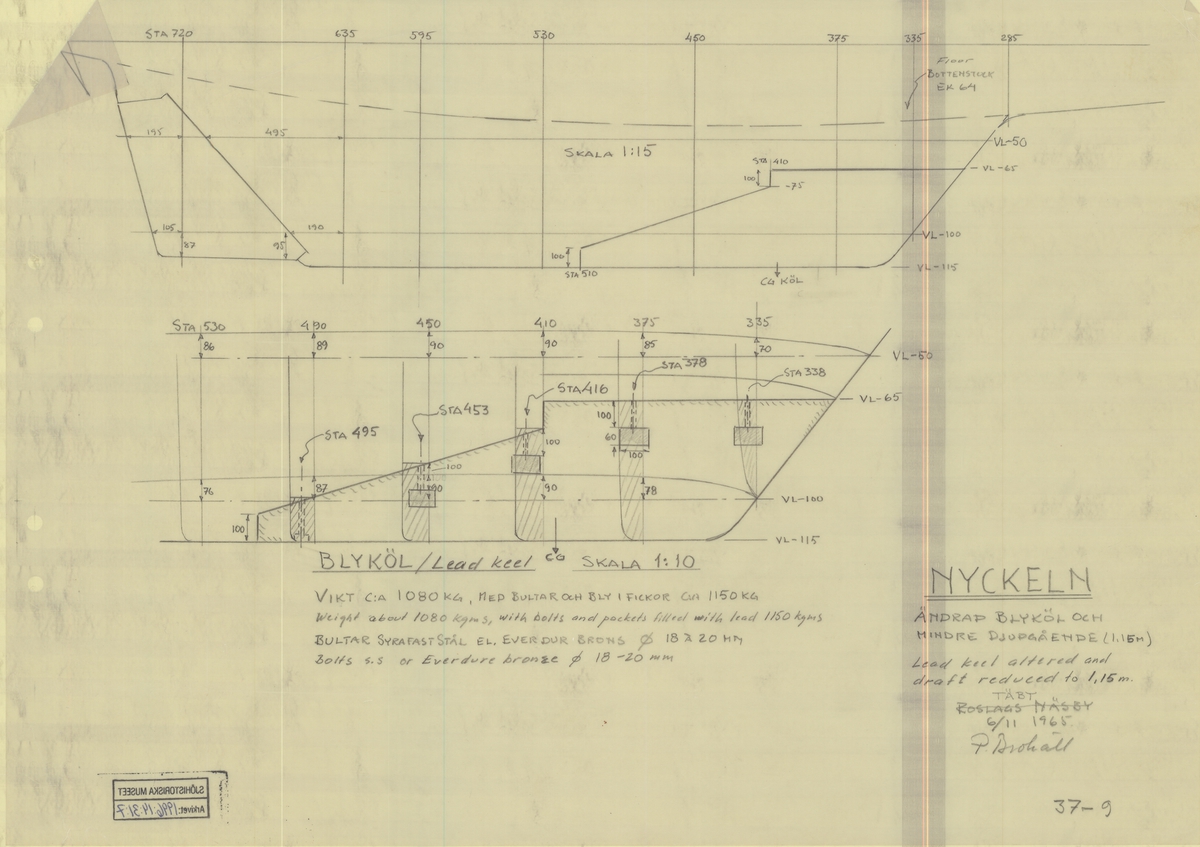 STA 720 635 595 530 450 375 335 285
Floor
BOTTENSTOCK
EK 64
195 495
VL-50
SKALA 1:15
STA 410
100
-75
VL-65
105 190
87 95
VL-100
100
STA 510
CG KÖL
VL-115
STA 530 490 450 410 375 335
86 89 90 90 85 70
VL-50
STA 378
STA 338
STA 416
STA 453
STA 495
VL-65
100
60
100
100
100
76 87 90 90 78
VL-100
100
VL-115
BLYKÖL / Lead keel CG SKALA 1:10
VIKT C:A 1080 KG, MED BULTAR OCH BLY I FICKOR C:A 1150 KG
Weight about 1080 kgms, with bolts and pockets filled with lead 1150 kgms
BULTAR SYRAFAST STÅL EL. EVERDUR BRONS Ø 18 Á 20 MM
Bolts s.s or Everdure bronze Ø 18-20 mm
NYCKELN
ÄNDRAD BLYKÖL OCH
MINDRE DJUPGÅENDE (1.15M)
Lead keel altered and
draft reduced to 1,15 m.
TÄBY
ROSLAGS NÄSBY
6/11 1965
P. Brohäll
SJÖHISTORISKA MUSEET
Arkivet: 1996:14:31:7
37-9